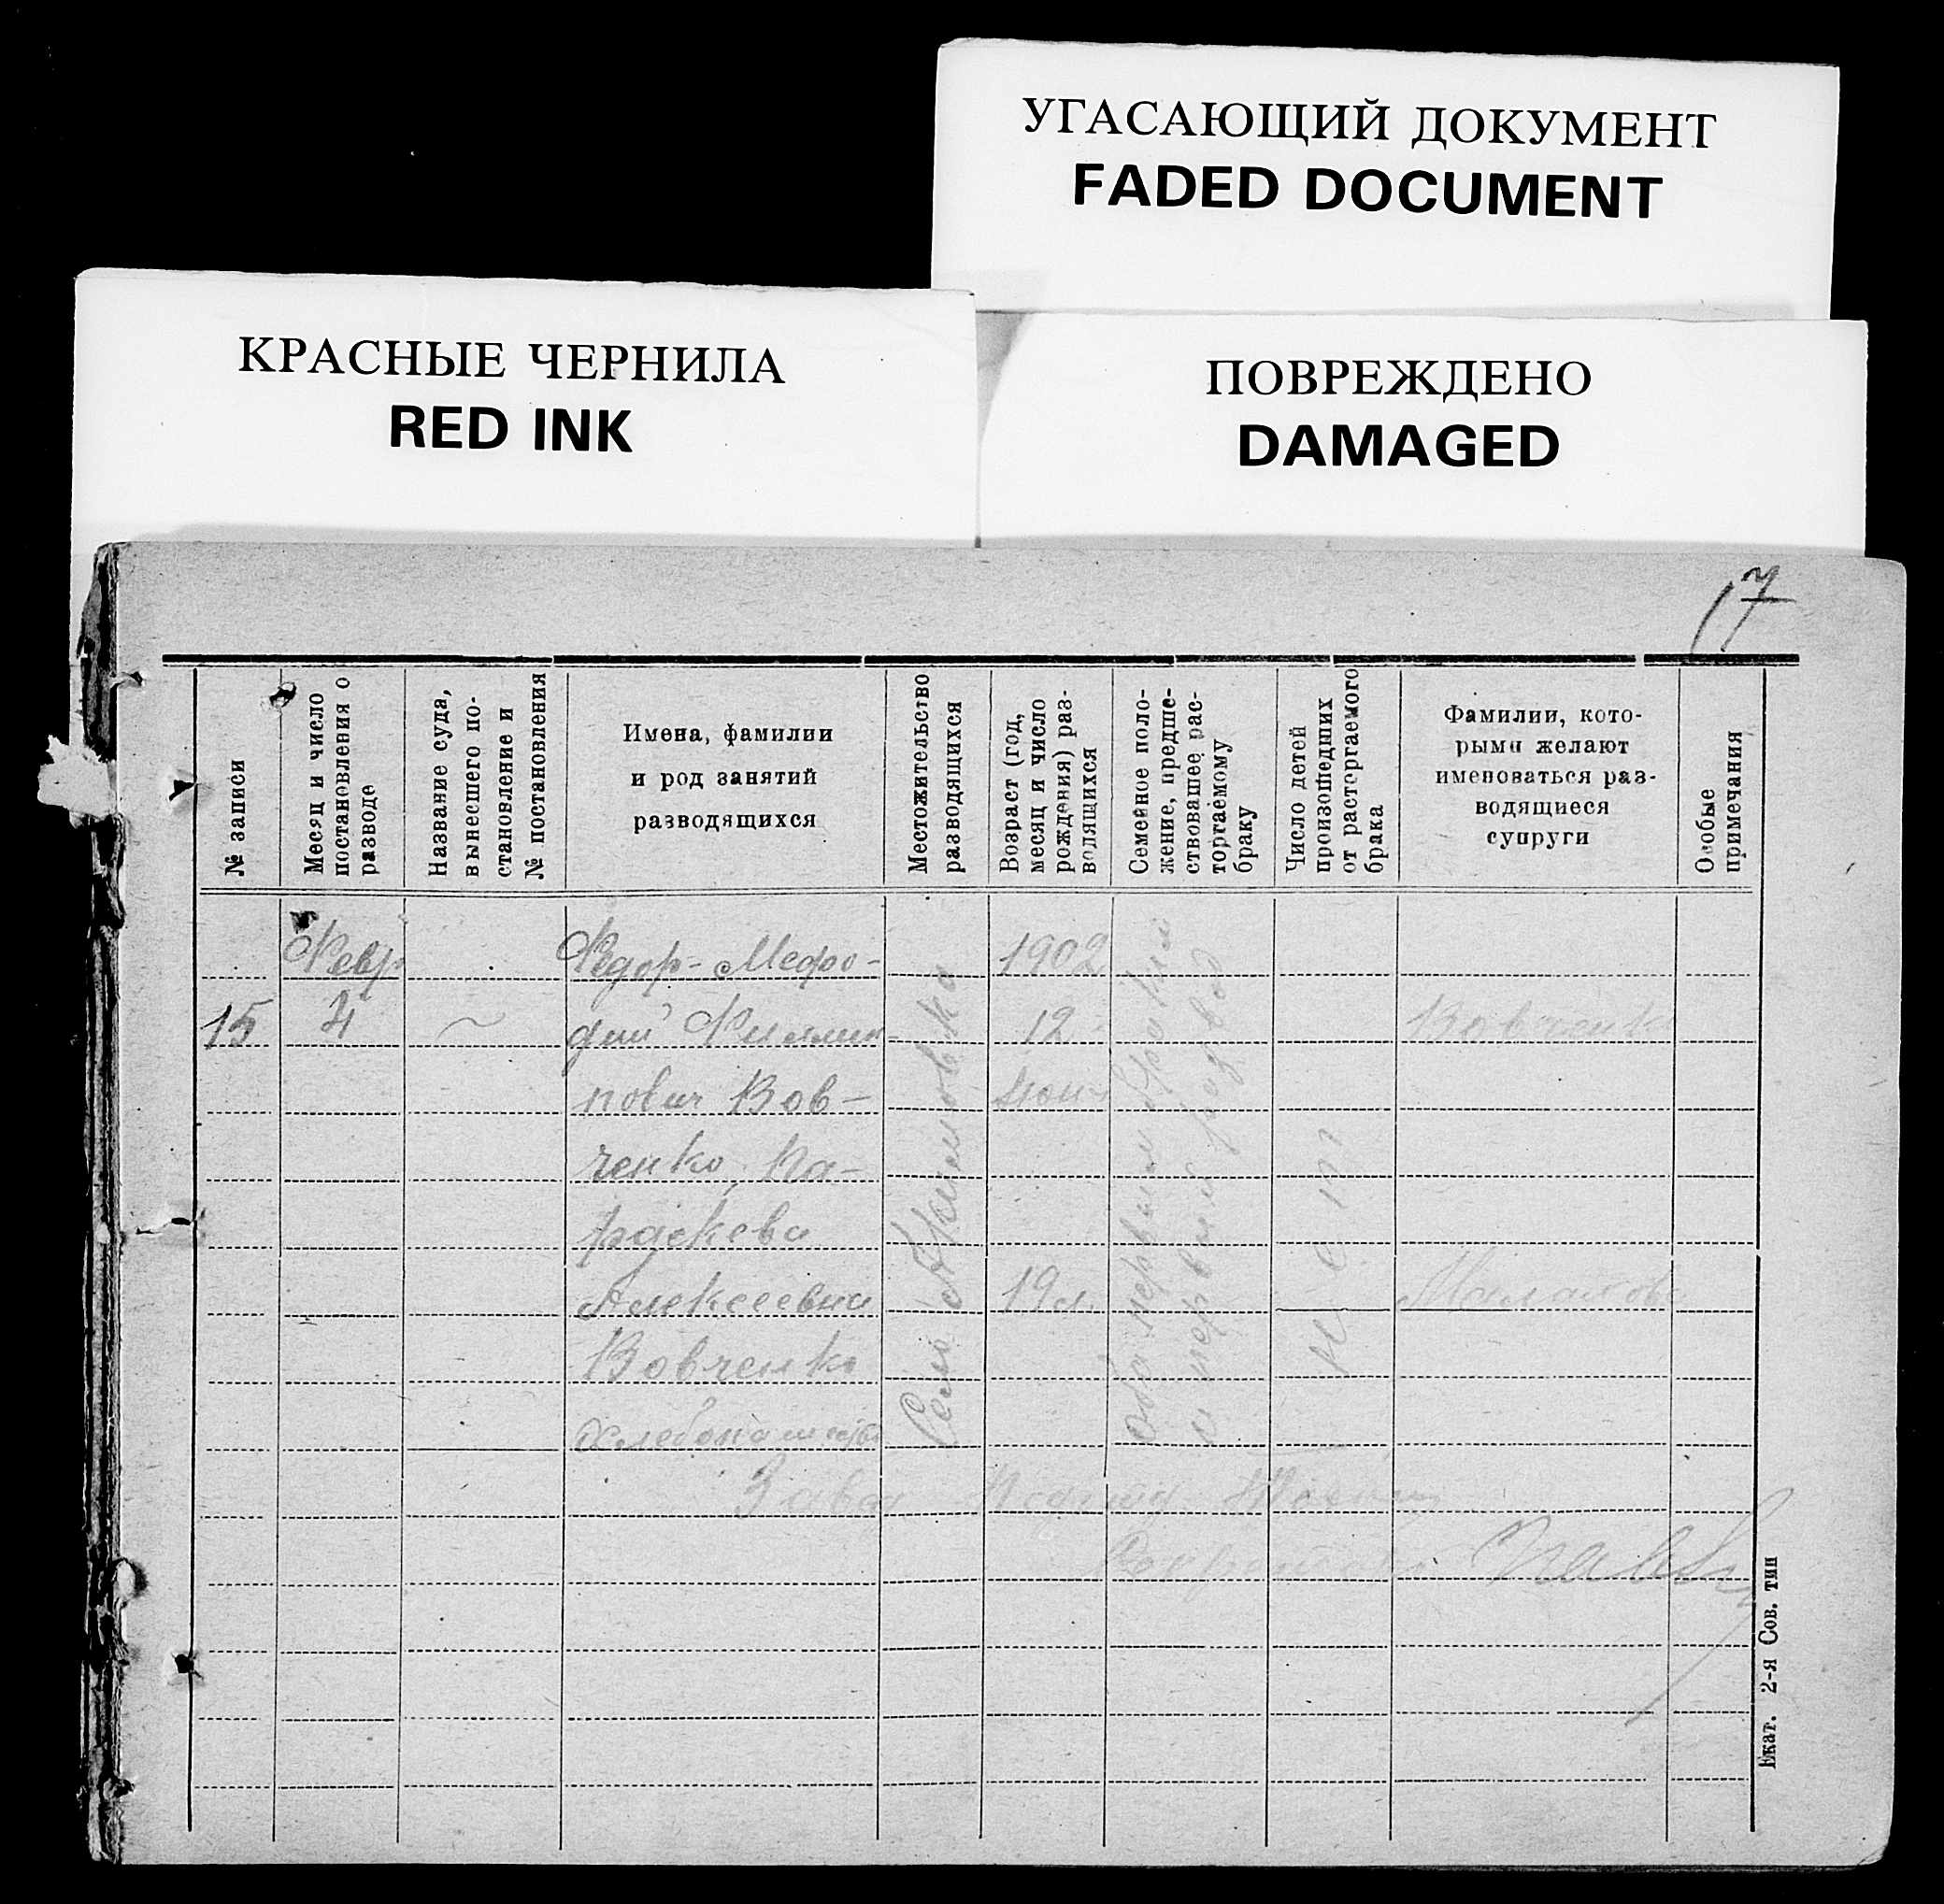 УГАСАЮЩИЙ ДОКУМЕНТ
FADED DOCUMENT
КРАСНЫЕ ЧЕРНИЛА
RED INK
ПОВРЕЖДЕНО
DAMAGED
17
№ записи
Месяц и число
постановления о
разводе
Название суда,
вынесшего по-
становление и
№ постановления
Имена, фамилии
и род занятий
разводящихся
Местожительство
разводящихся
Возраст (год,
месяц и число
рождения) раз-
водящихся
Семейное поло-
жение, предше-
ствовавшее рас-
торгаемому
браку
Число детей
происшедших
от расторгаемого
брака
Фамилии, кото-
рыми желают
именоваться раз-
водящиеся
супруги
Особые
примечания
15
Февр
4
Федор-Мефо-
дий Филлип
пович Вов-
ченко, Па-
раскева
Алексеевна
Вовченко
хлебопашество
Село Акимовка
1902
12
19 л.
оба первым браком
и первый развод
Нет
Вовченко
Секретарь
Екат. 2-я Сов. тип